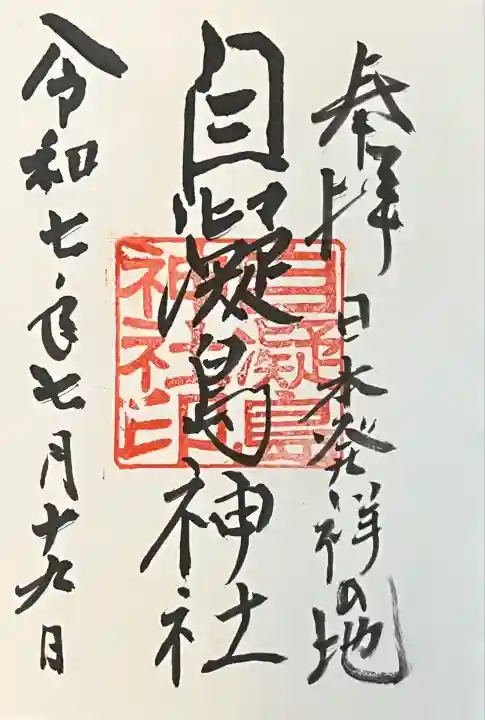 奉拝
日本発祥の地
自凝島神社
自凝島
神社印
令和七年七月十九日